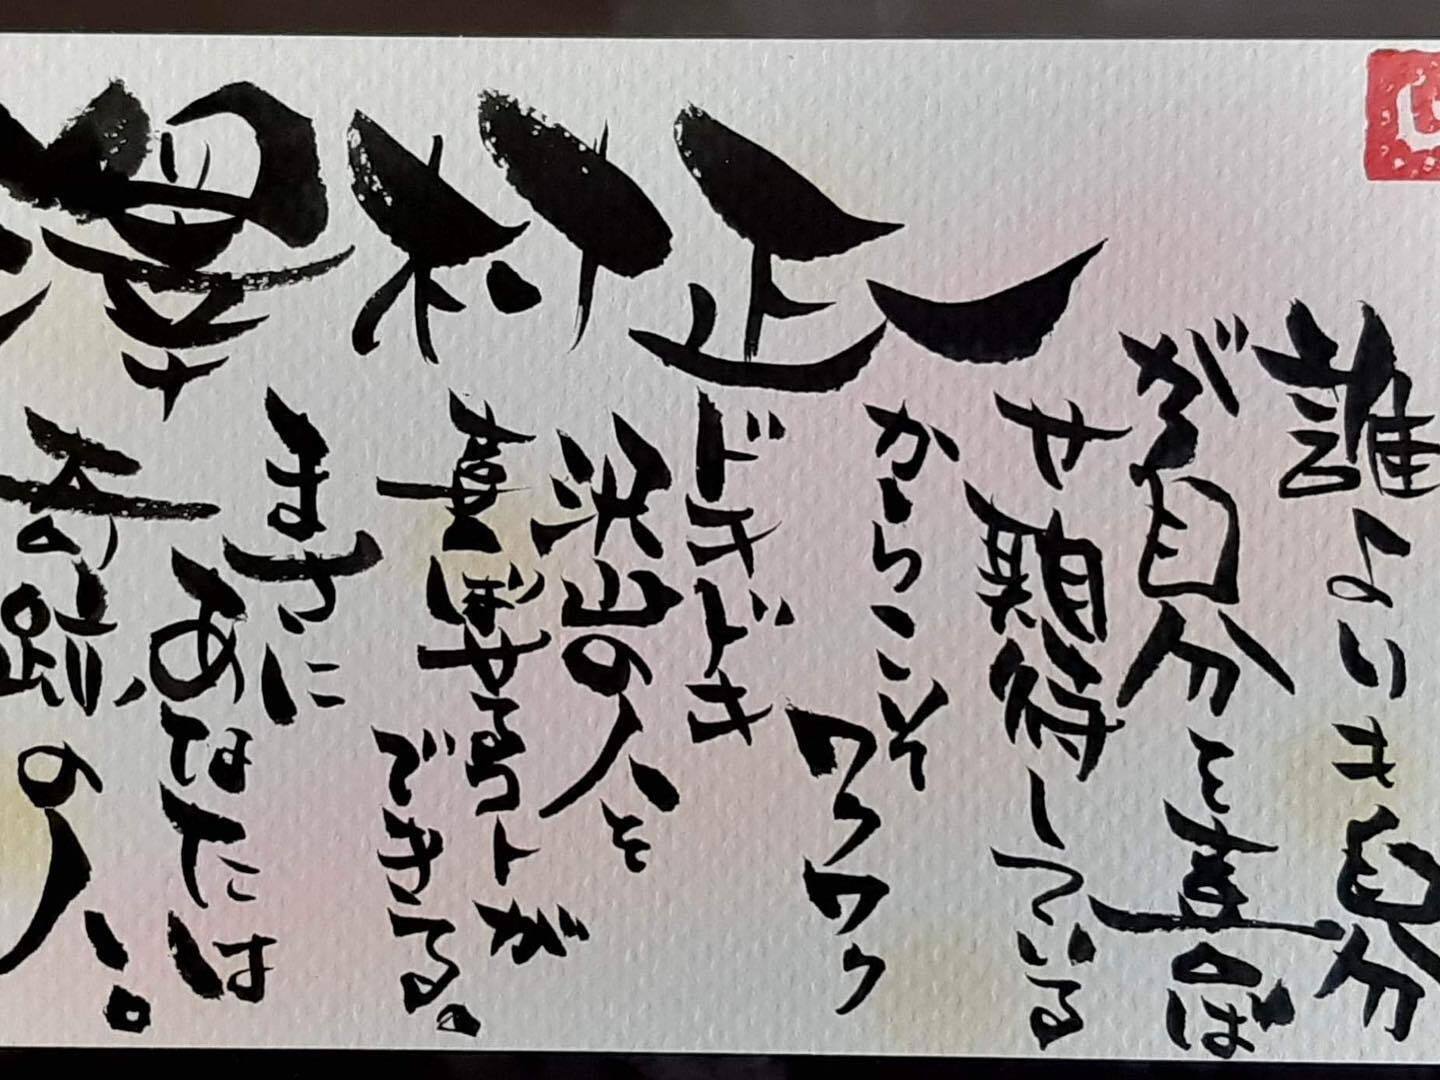 澤村正一
誰よりも自分
が自分を喜ば
せ期待している
からこそワクワク
ドキドキ
沢山の人を
喜ばせるコトが
できる。
まさに
あなたは
の人。